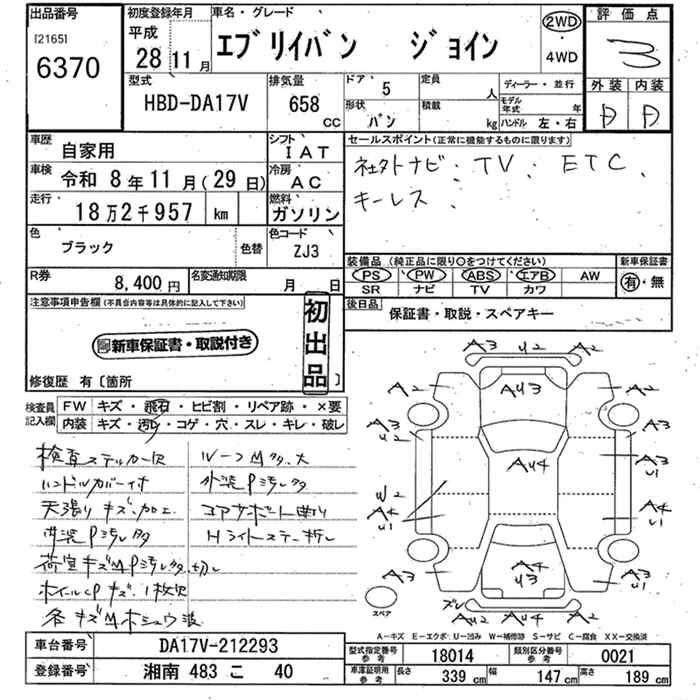 出品番号
[2165]
6370
初度登録年月
平成
28 11月
車名・グレード
エブリイバン ジョイン
2WD
・
4WD
評価点
3
外装 内装
D D
型式
HBD-DA17V
排気量
658
CC
ドア
5
定員
人
形状
バン
積載
kg
ディーラー・並行
モデル年式 年
ハンドル 左・右
車歴
自家用
シフト
IAT
車検
令和 8年 11月 (29日)
冷房
AC
走行
18万2千957 km
燃料
ガソリン
色
ブラック
色替
色コード
ZJ3
R券
8,400円
名変通知期限
月 日
セールスポイント(正常に機能するものに限ります)
社外ナビ. TV. ETC.
キーレス.
装備品 (純正品に限り○をつけてください)
新車保証書
PS PW ABS エアB AW
有・無
SR ナビ TV カワ
後日品
保証書・取説・スペアキー
注意事項申告欄(不具合内容等は具体的に記入して下さい)
新車保証書・取説付き
初出品
修復歴 有〔箇所 〕
検査員記入欄
FW キズ・飛石・ヒビ割・リペア跡・×要
内装 キズ・汚レ・コゲ・穴・スレ・キレ・破レ
検査ステッカー欠
ハンドルカバー付
天張りキズ.加工
内装P汚レ多
荷室キズM P汚レ多.切レ
ホイールCPキズ.1枚欠
各キズMホシュウ波
ルーフM多.大
外装P汚レ多
コアサポート曲り
Hライトステー折レ
A3 U2 A2
A2 AU3 A2
A3 U2
A3
AU4
A3 U1
W2
A4 U1
A4 U1
A3
A4 U3
A3 U1
ズレ
AU2 AU2 A2
スペア
A-キズ E-エクボ U-凹み W-補修跡 S-サビ C-腐食 XX-交換済
車台番号
DA17V-212293
登録番号
湘南 483 こ 40
型式指定番号
参考
18014
類別区分番号
参考
0021
車庫証明用
参考
長さ 339 cm 幅 147 cm 高さ 189 cm